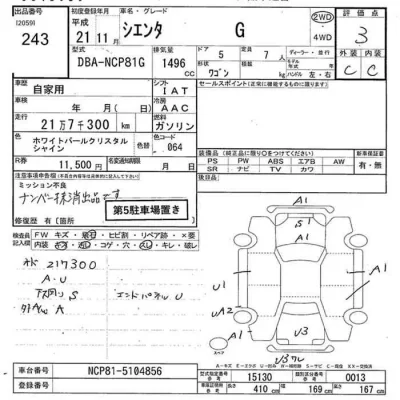 出品番号 初度登録年月 車名・グレード 2WD 評価
120591 平成 シエンタ G 4WD 3
243 21年 11月
型式 排気量 ドア 定員 ディーラー・並行
DBA-NCP81G 1496 5 7 モデル年式 年
cc ワゴン ハンドル 左・右
外装 内装
C C
車歴 自家用 シフト IAT セールスポイント
車検 年 月 冷房 AAC
走行 21万7千300 km 燃料 ガソリン
色 ホワイトパールクリスタルシャイン 色替 色No. 064
装備
PS PW ABS エアB AW
SR ナビ TV カワ
新車保証書
有・無
R 11,500 円 名義変更期限 月
注意事項申告事項
ミッション不良
ナンバー抹消出品です
修復歴 有【箇所
第5駐車場置き
検査員 FW キズ・ヒビ割・リペア跡・×要
記入欄 内装 コゲ・穴・キレ・破レ
217300
A・U
下廻りS
エンドパネルU
A
A1
S1
A1
A1
U1
UA2
A1
U3
U3ワレ
スペア
車台番号 NCP81-5104856 型式指定番号 15130 類別区分番号 0013
登録番号 長さ 410 cm 幅 169 cm 高さ 167 cm